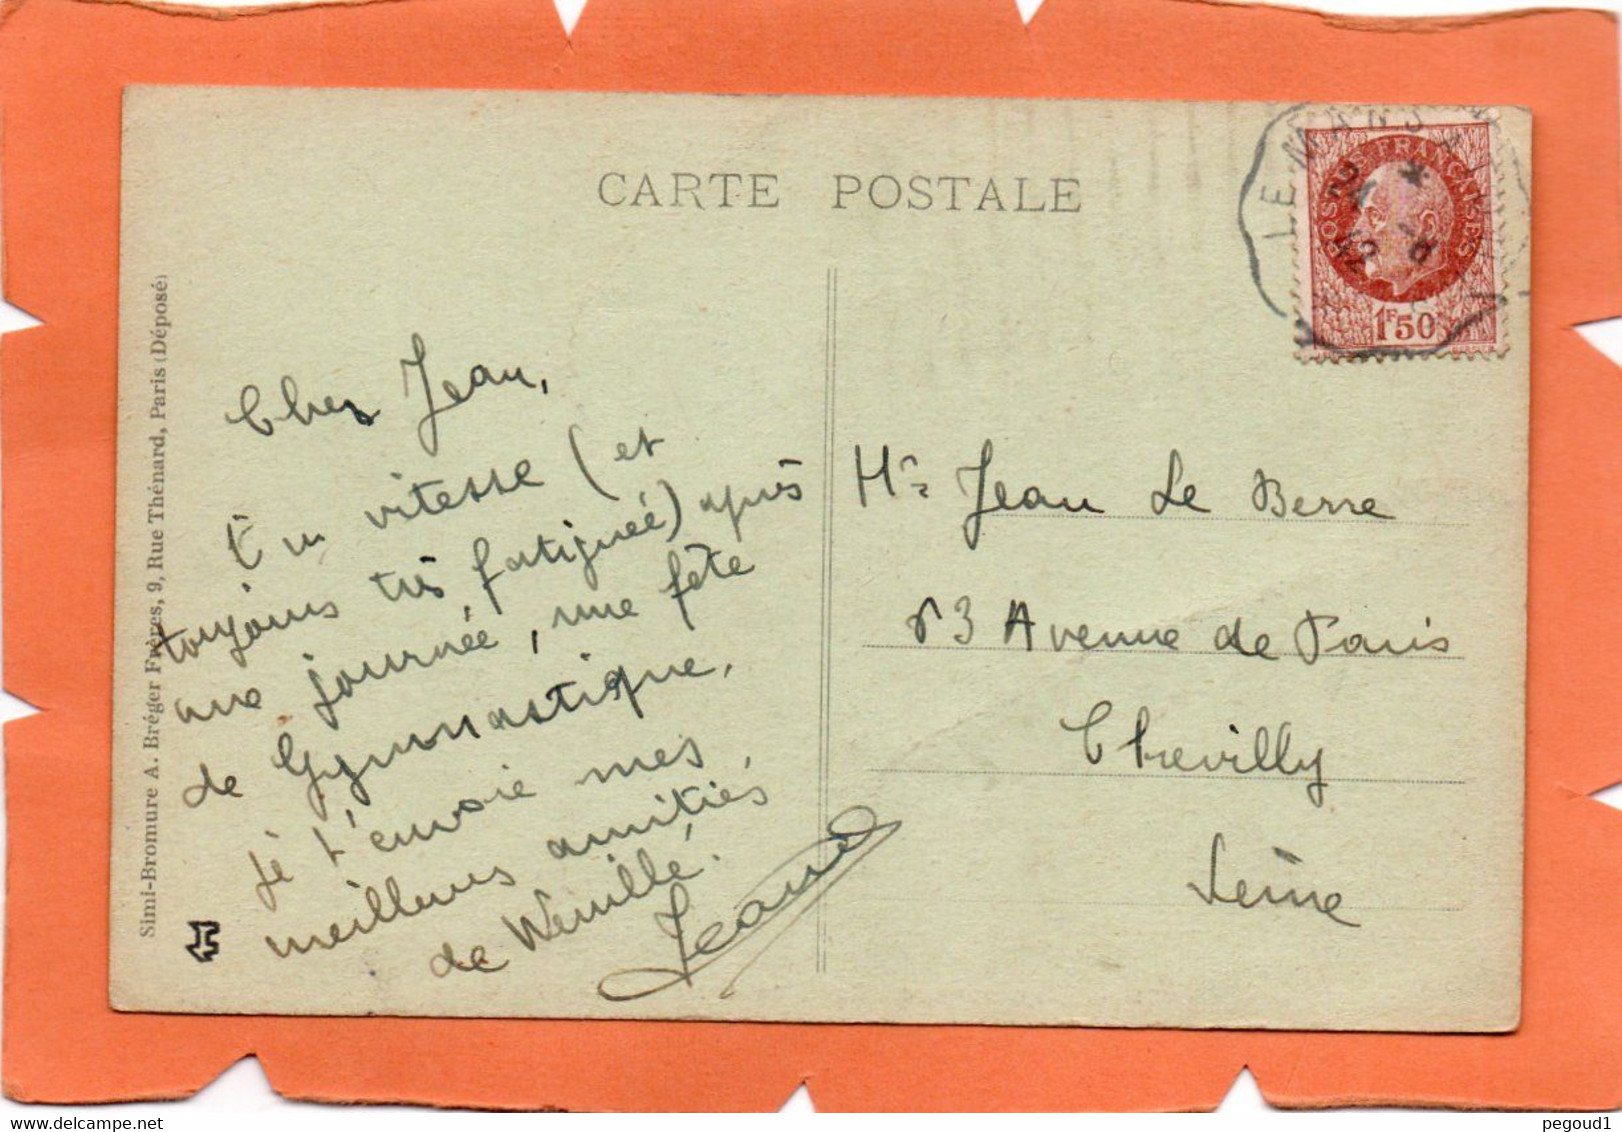 CARTE POSTALE
Simi-Bromure A. Bréger Frères, 9, Rue Thénard, Paris (Déposé)
LE MANS A
24 -6
42
POSTES FRANÇAISES
1F50
Cher Jean,
En vitesse (et
toujours très fatiguée) après
une journée, une fête
de Gymnastique,
je t'envoie mes
meilleures amitiés
de
Jeanne
Mr Jean Le Berre
83 Avenue de Paris
Chevilly
Seine
pegoud1